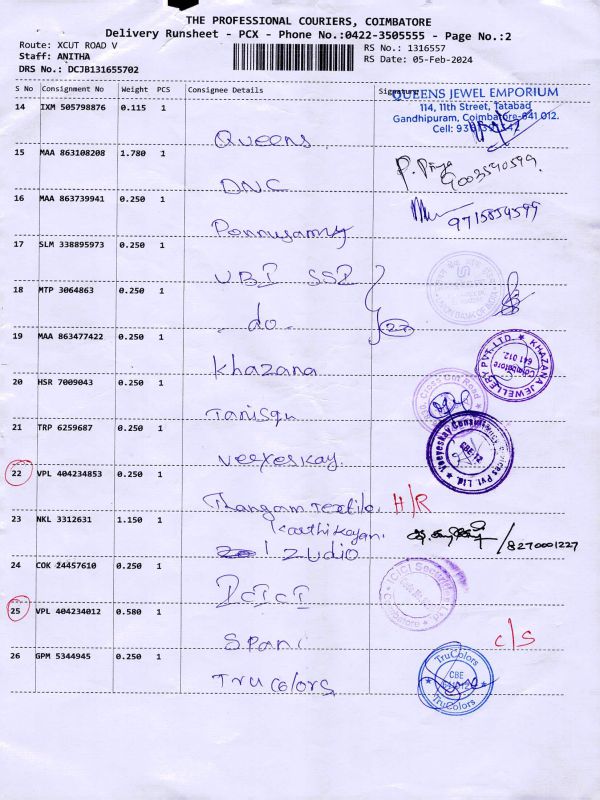 THE PROFESSIONAL COURIERS, COIMBATORE
Delivery Runsheet - PCX - Phone No.:0422-3505555 - Page No.:2
Route: XCUT ROAD V
RS No.: 1316557
Staff: ANITHA
RS Date: 05-Feb-2024
DRS No.: DCJB131655702
S No Consignment No Weight PCS Consignee Details Signature
QUEENS JEWEL EMPORIUM
114, 11th Street, Tatabad
Gandhipuram, Coimbatore-641 012.
Cell:
14 IXM 505798876 0.115 1
Queens
15 MAA 863108208 1.780 1
DNC
P. Priya
9003540599
16 MAA 863739941 0.250 1
Ponnusamy
9715854599
17 SLM 338895973 0.250 1
UBI SSI
18 MTP 3064863 0.250 1
do
19 MAA 863477422 0.250 1
Khazana
KHAZANA JEWELLERY PVT. LTD.
Coimbatore
641 012
20 HSR 7009043 0.250 1
Tanisqu
Cross Cut Road
21 TRP 6259687 0.250 1
Veeyeskay
Veeyeskay Consultancy Services Pvt. Ltd.
CBE-12
22 VPL 404234853 0.250 1
Thangam Textile
H/R
23 NKL 3312631 1.150 1
Karthikeyan
Zudio
/8270001227
24 COK 24457610 0.250 1
ICICI
ICICI Securities Ltd
Coimbatore
25 VPL 404234012 0.580 1
Spani
C/S
26 GPM 5344945 0.250 1
Tru colors
TruColors
CBE
TruColors